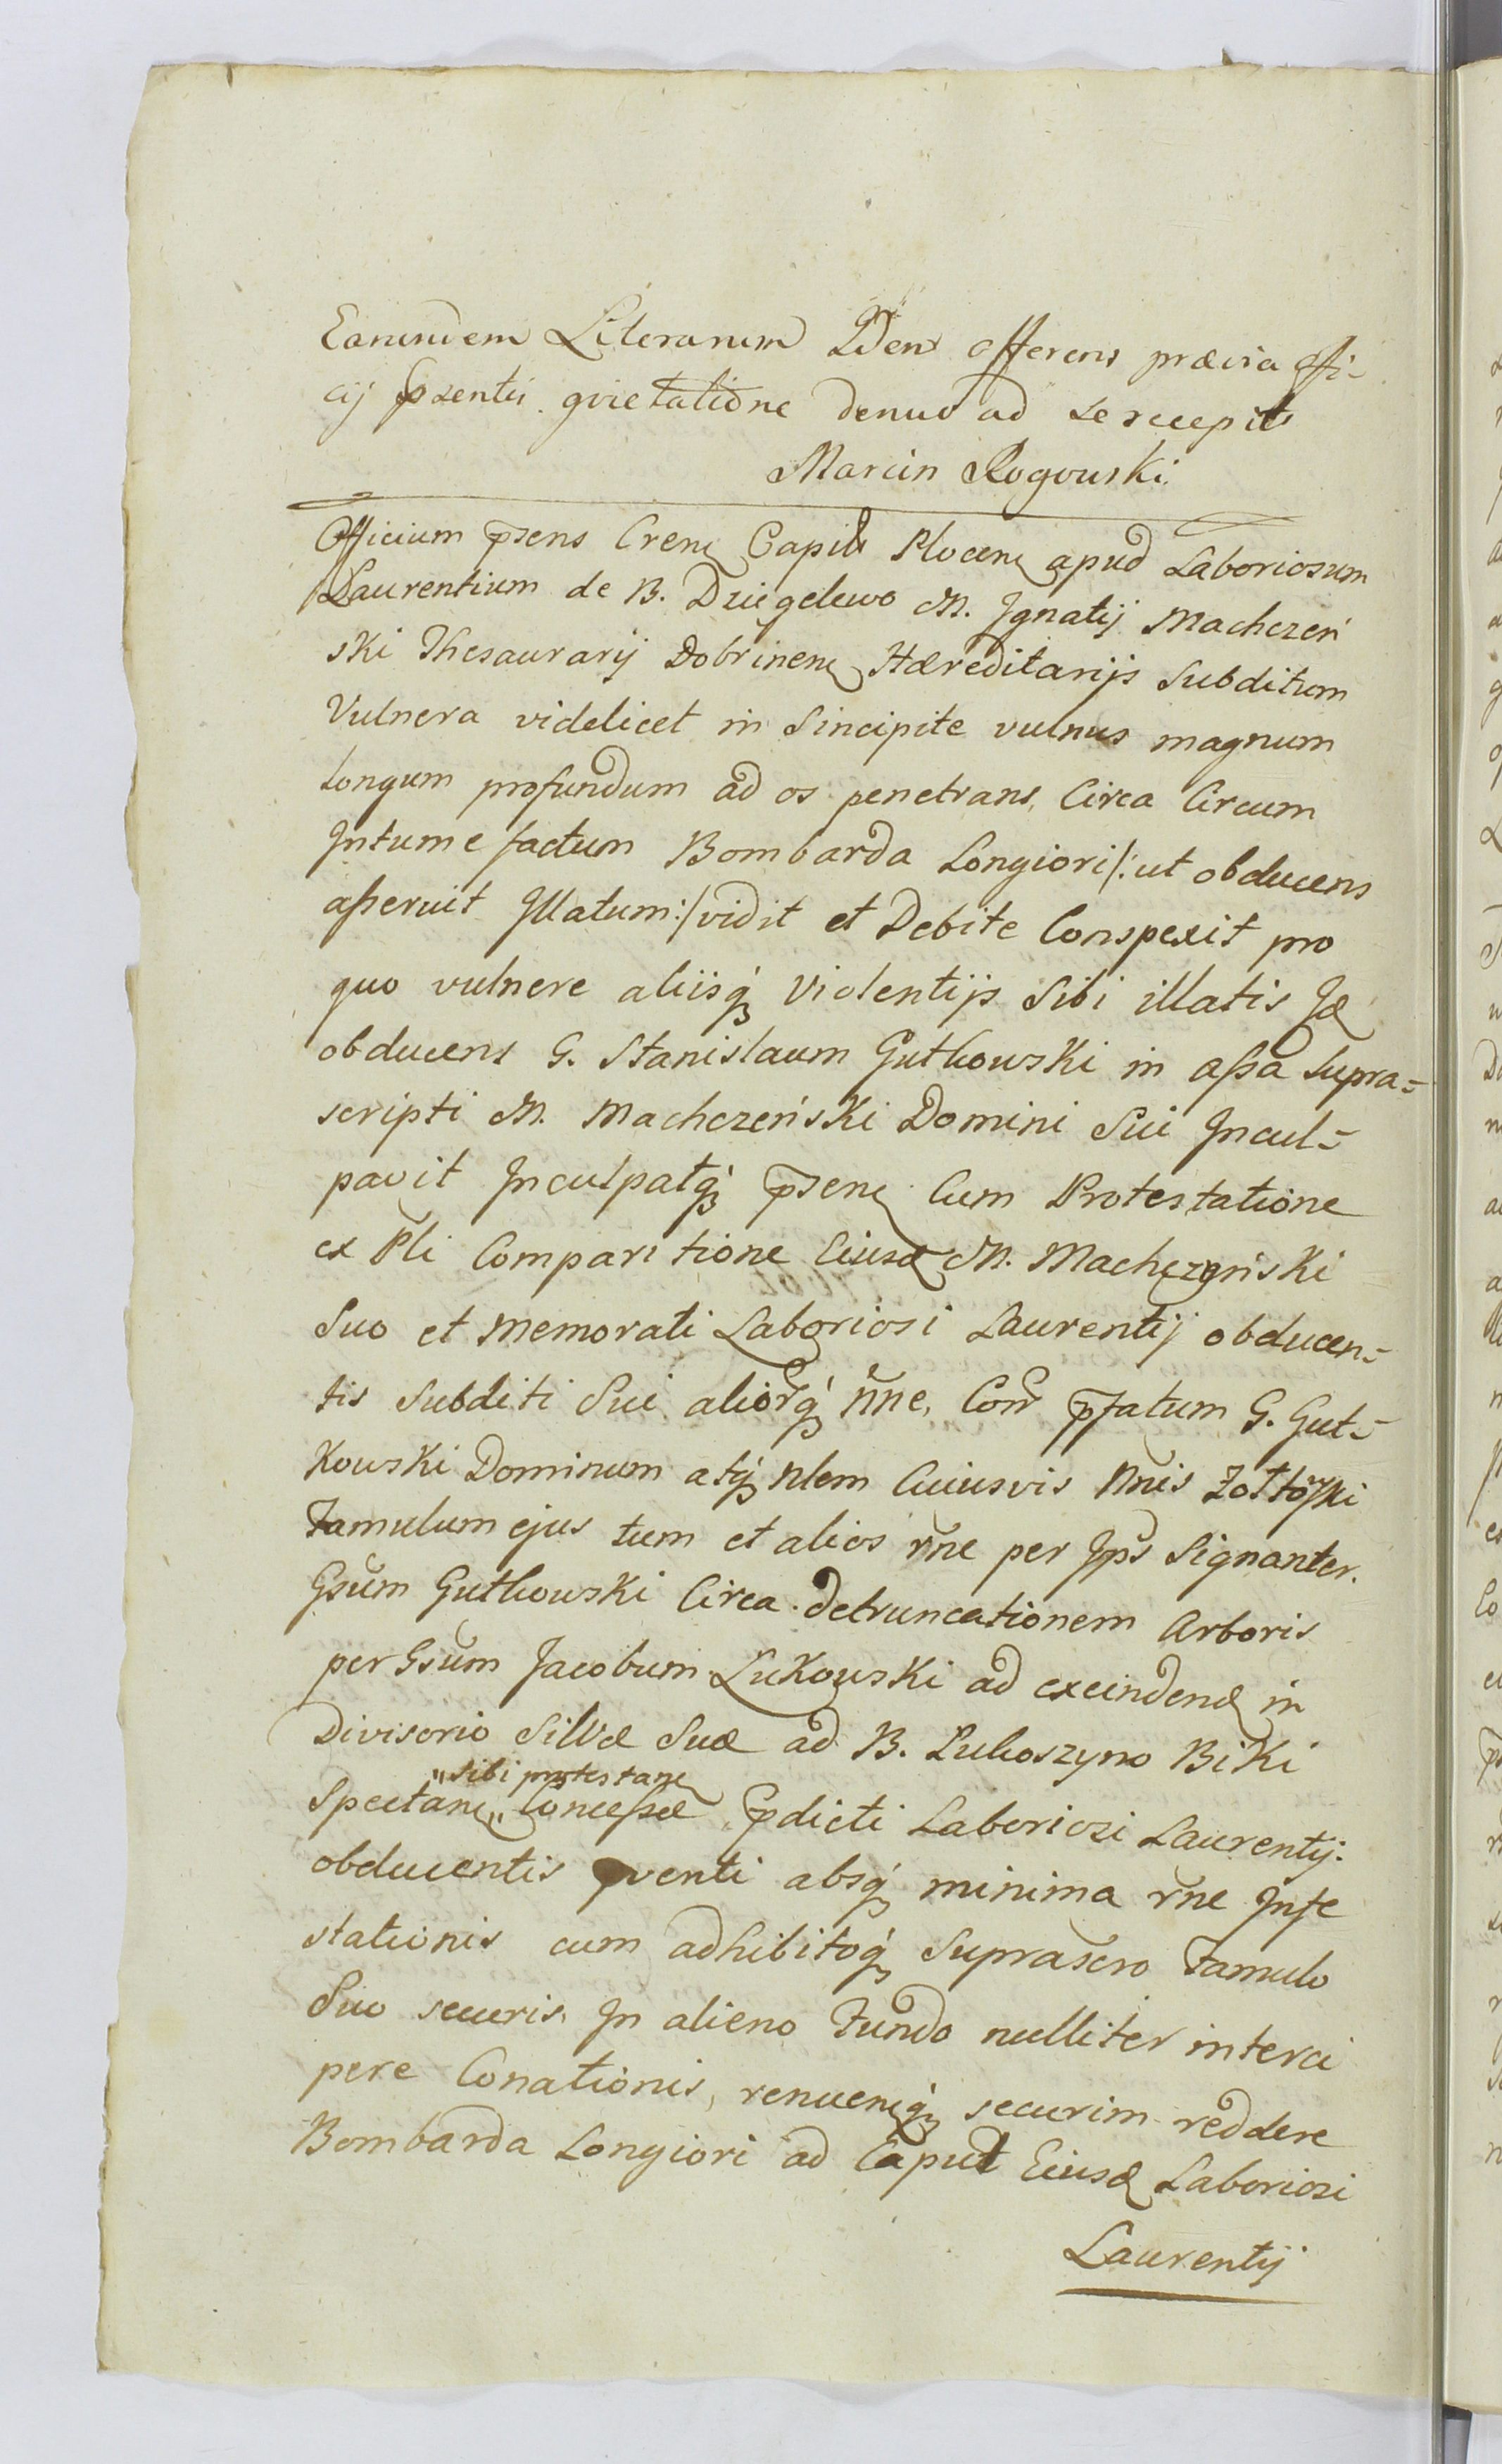 Earundem Literarum Iden offerens prævia Offi-
cij pzentis qvietatione denuo ad se recepit
Marcin Rogowski
Officium pzens Crene Capile Plocene apud Laboriosum
Laurentium de B. Dziegelewo M. Jgnatij Machczeń
ski Thesaurarij Dobrinene Hæreditarijs Subditum
Vulnera videlicet in Sincipite vulnus magnum
longum profundum ad os penetrans, Circa Circum
Jntume factum Bombarda Longiori /: ut obducens
aßeruit Jllatum :/ vidit et Debite Conspexit pro
quo vulnere aliisq́ Violentijs Sibi illatis Jd
obducens G. Stanislaum Gutkowski in aßa Supra=
scripti M. Machczeński Domini Sui Jncul=
pavit Jnculpatq́ pzene Cum Protestatione
ex Pli Comparitione Eiusd M. Machczeński
Suo et Memorati Laboriosi Laurentij obducen=
tis Subditi Sui aliorq́ nne, Con̄ pfatum G. Gut=
Kowski Dominum atq́ Nlem Cuiusvis Nnis Zołtoski
Famulum ejus tum et alios rne per Jps Signanter.
Gsum Gutkowski Circa detruncationem Arboris
per Gsum Jacobum Łukowski ad excindend in
Divisorio Silvæ Suæ ad B. Lukoszyno Biki
" Sibi protestane
Spectane " Conceßæ pdicti Laboriosi Laurentij
obducentis pventi absq́ minima rne Jnfe
stationis cum adhibitoq́ Suprascro Famulo
Suo securis Jn alieno Fundo nulliter interci
pere Conationis, renueneq́ securim reddere
Bombarda Longiori ad Caput Eiusd Laboriosi
Laurentij